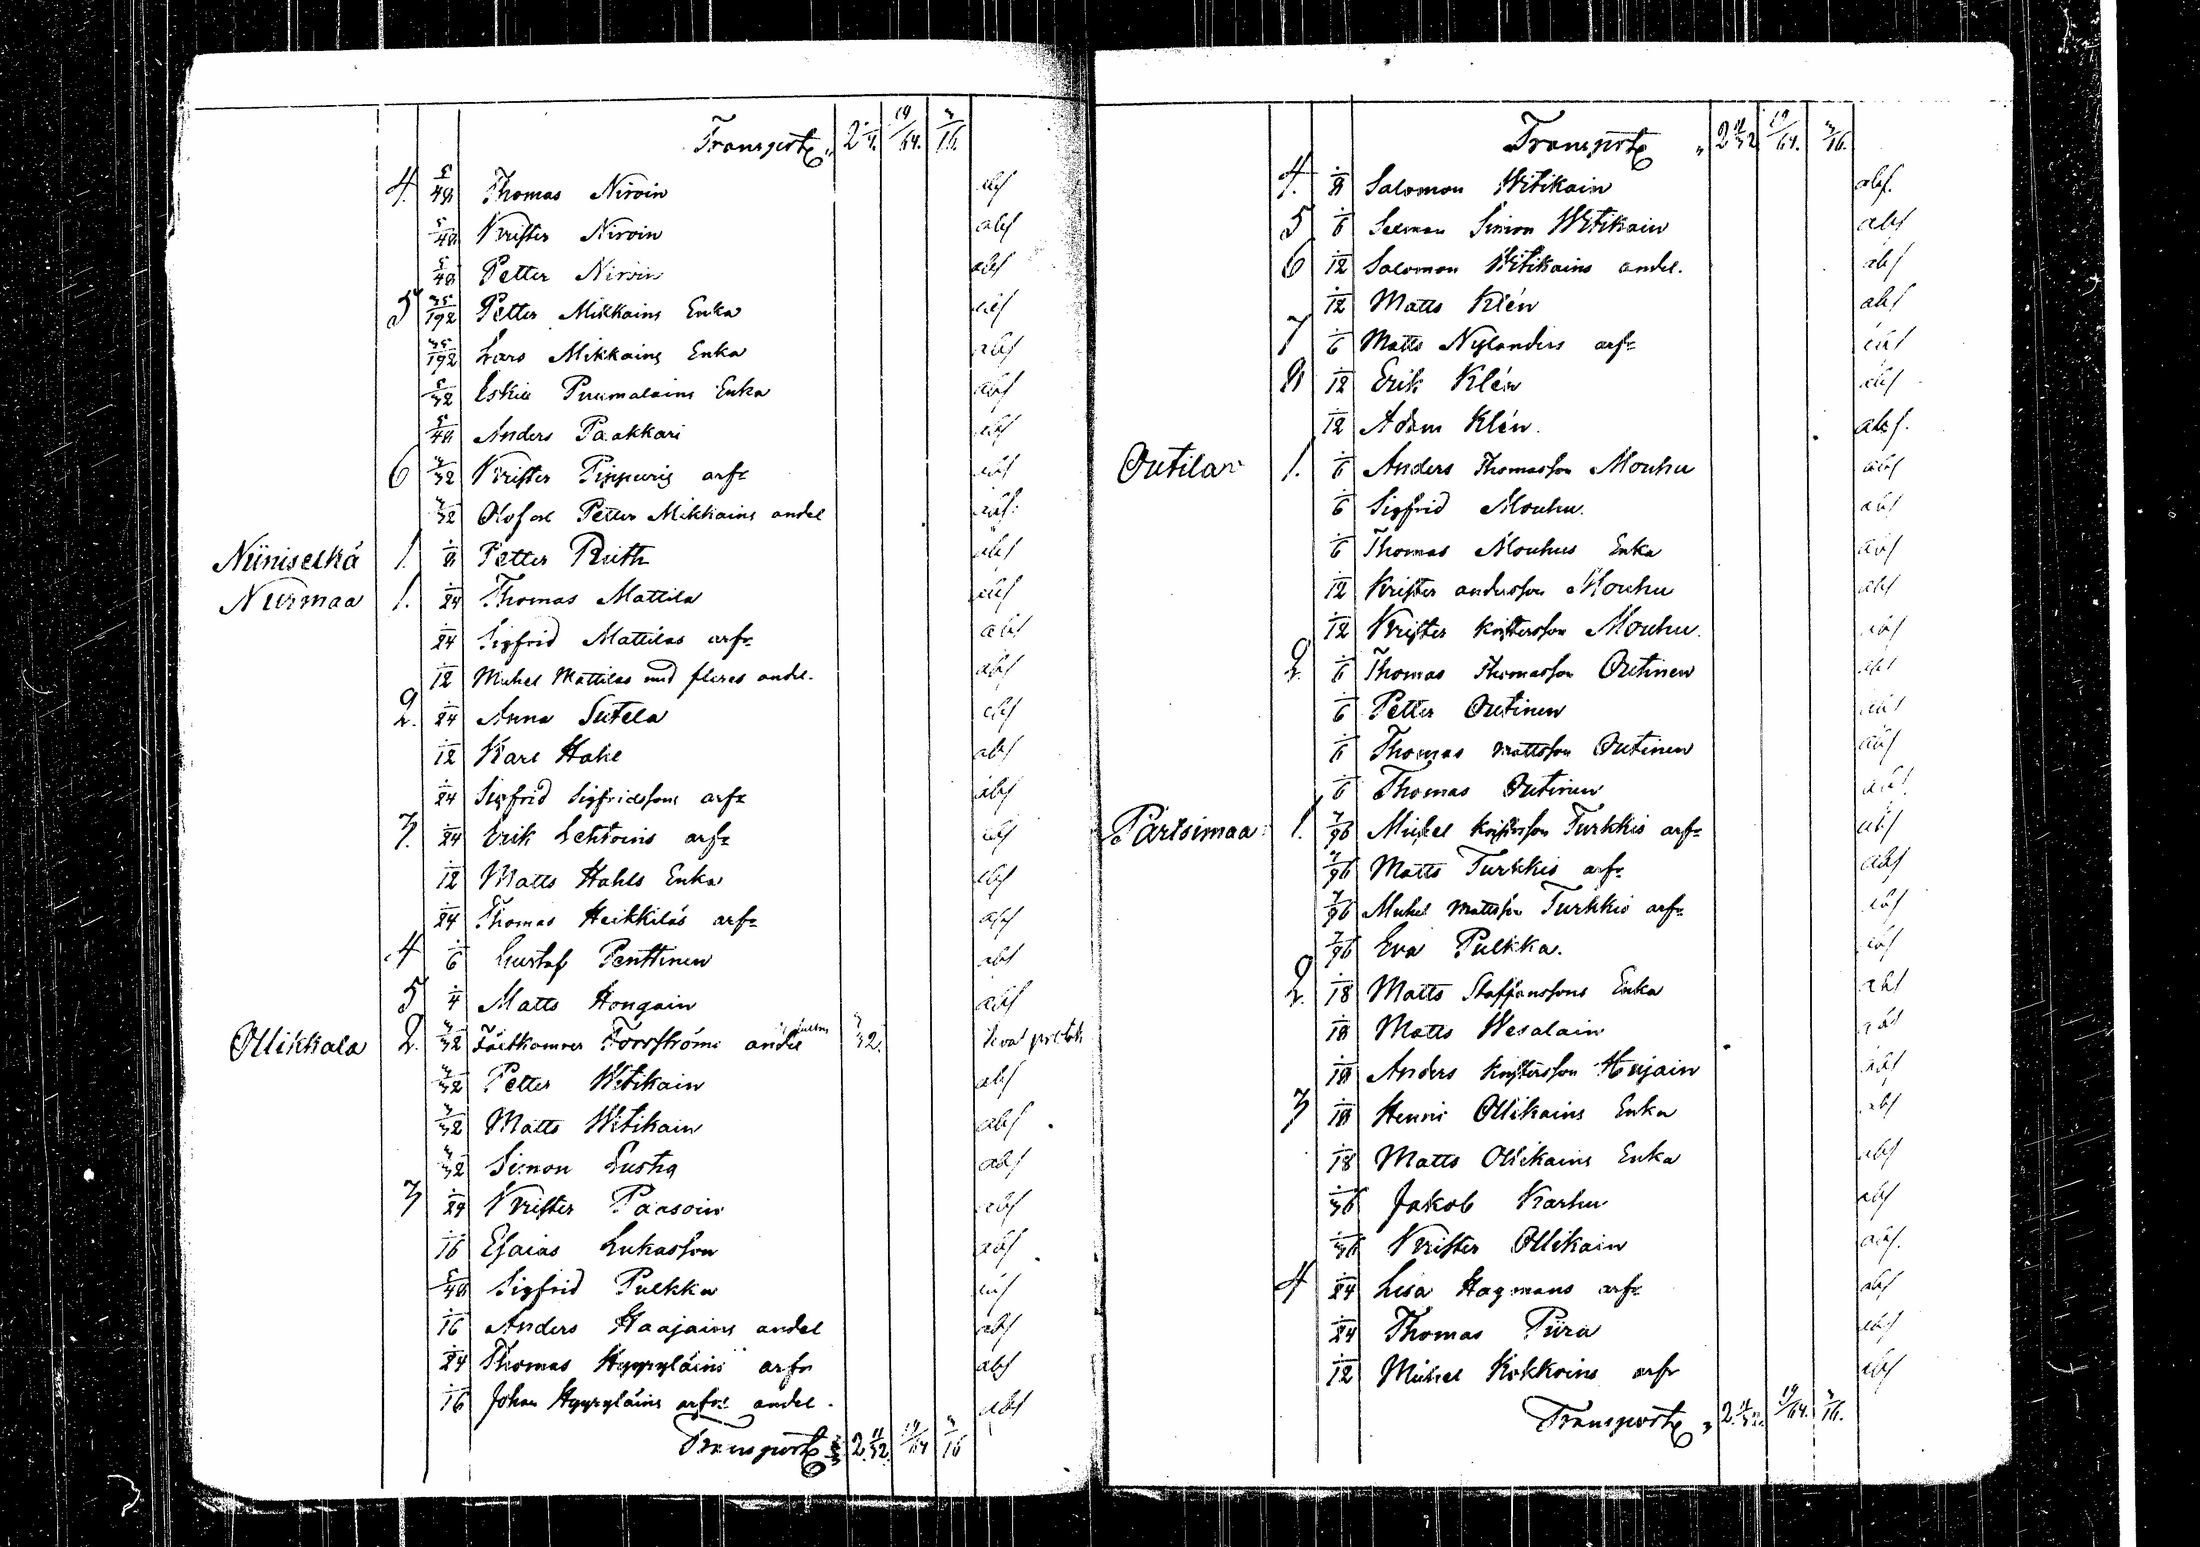 Transport „ 2 1/4. 19/64. 3/16.
4. 5/48 Thomas Niroin abs
5/48 Krister Niroin abs
5/48 Petter Niroin abs
5 35/192 Petter Mikkains Enka abs
35/192 Lars Mikkains Enka abs
5/32 Eskil Puumalains Enka abs
5/48 Anders Paakkari abs
6 3/32 Krister Pippuris arfr abs
3/32 Olof och Petter Mikkains andel abs.
Niiniselkä 1. 1/8 Petter Ruth abs
Nurmaa 1. 1/24 Thomas Mattila abs
1/24 Sigfrid Mattilas arfr abs
1/12 Mickel Mattilas med fleres andel. abs
2. 1/24 Anna Sutela abs
1/12 Karl Hahl abs
1/24 Sigfrid Sigfridssons arfr abs
3. 1/24 Erik Lehtoins arfr abs
1/12 Matts Hahls Enka abs
1/24 Thomas Heikkiläs arfr abs
4 1/6 Gustaf Penttinen abs
5 1/4 Matts Hongain abs
Ollikkala 2. 3/32 Fältkamrer Forsströms andel 3/32.
3/32 Petter Witikain abs
3/32 Matts Witikain abs
3/32 Simon Lustig abs
3 1/24 Krister Paasoin abs
1/16 Esaias Lukasson abs
5/48 Sigfrid Pulkka abs
1/16 Anders Haajains andel abs
1/24 Thomas Hyyryläins arfr abs
1/16 Johan Hyyryläins arfrs andel. abs
Transport 2. 11/32. 19/64 3/16
Transport „ 2 11/32 19/64. 3/16.
4. 1/8 Salomon Witikain abs.
5 1/6 Salomon Simon Witikain abs
6 1/12 Salomon Witikains andel. abs
1/12 Matts Klén abs
7 1/6 Matts Nylanders arfr abs
8 1/12 Erik Klén abs
1/12 Adam Klén. abs.
Outila 1. 1/6 Anders Thomasson Mouhu abs
1/6 Sigfrid Mouhu. abs
1/6 Thomas Mouhus Enka abs
1/12 Krister andersson Mouhu abs
1/12 Krister Kristersson Mouhu. abs
2. 1/6 Thomas Thomasson Outinen abs
1/6 Petter Outinen abs
1/6 Thomas Mattsson Outinen abs
1/6 Thomas Outinen abs
Partsimaa 1. 7/96 Mickel Kristersson Turkkis arfr abs
7/96 Matts Turkkis arfr abs
7/96 Mickel Mattsson Turkkis arfr abs
7/96 Eva Pulkka. abs
2. 1/18 Matts Staffanssons Enka abs
1/18 Matts Wesalain abs
1/18 Anders Kristersson Hujain abs
3 1/18 Henric Ollikains Enka abs
1/18 Matts Ollikains Enka abs
1/36 Jakob Karhu abs
1/36 Krister Ollikain abs.
4 1/24 Lisa Hagmans arfr abs
1/24 Thomas Piira abs
1/12 Mickel Kokkoins arfr abs
Transport „ 2. 11/32. 19/64. 3/16.